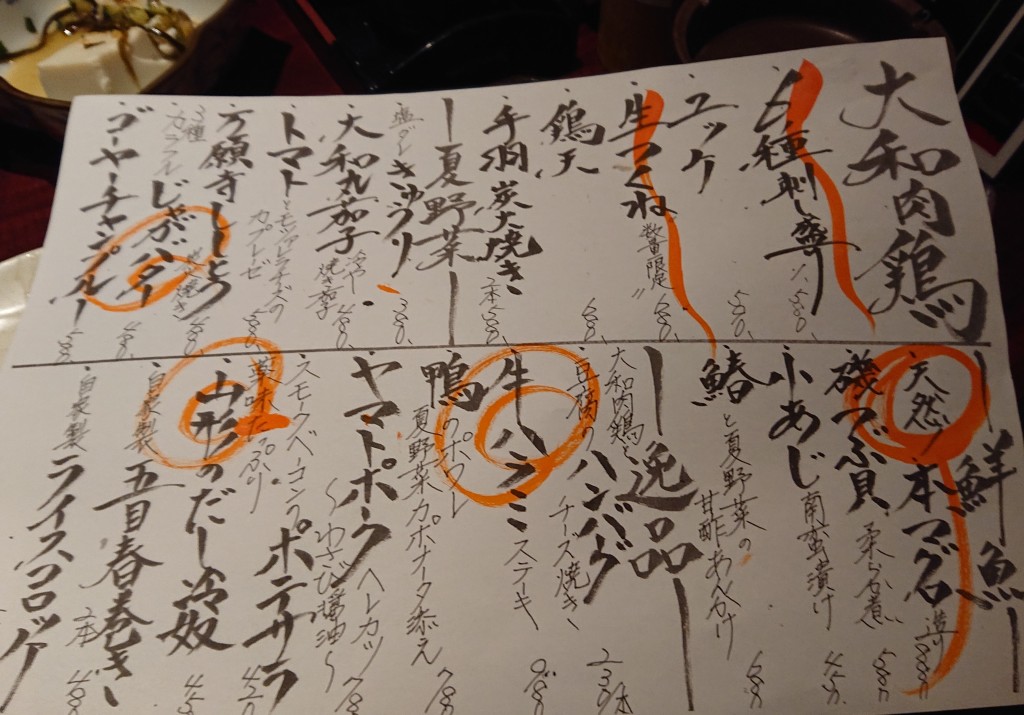 大和肉鶏
・七種刺し盛り 1,580.
・ユッケ 580.
・生つくね 数量限定 680.
・鶏天 680.
・手羽炭火焼き 二本 580.
ー夏野菜ー
・塩ダレきゅうり 380.
・大和丸茄子 冷やし焼き茄子 480.
・トマトとモッツァレラチーズのカプレーゼ 580.
・万願寺しとう 480.
・3種カラフルじゃがバター 480.
・ゴーヤーチャンプルー
ー鮮魚ー
・天然ノ本マグロ 造り 880
・磯つぶ貝 柔らか煮 580
・小あじ 南蛮漬け 450.
・鰆と夏野菜の甘酢あんかけ 680
ー逸品ー
・大和肉鶏と豆腐のハンバーグ チーズ焼き
・牛ハラミステーキ 980
・鴨のポワレ 夏野菜カポナータ添え 780
・ヤマトポーク ヘレカツ 〜わさび醤油〜 780
・スモークベーコンラポテサラ 420
・薬味たっぷり 山形のだし冷奴 450
・自家製 五目春巻き 二本 480
・自家製 ライスコロッケ